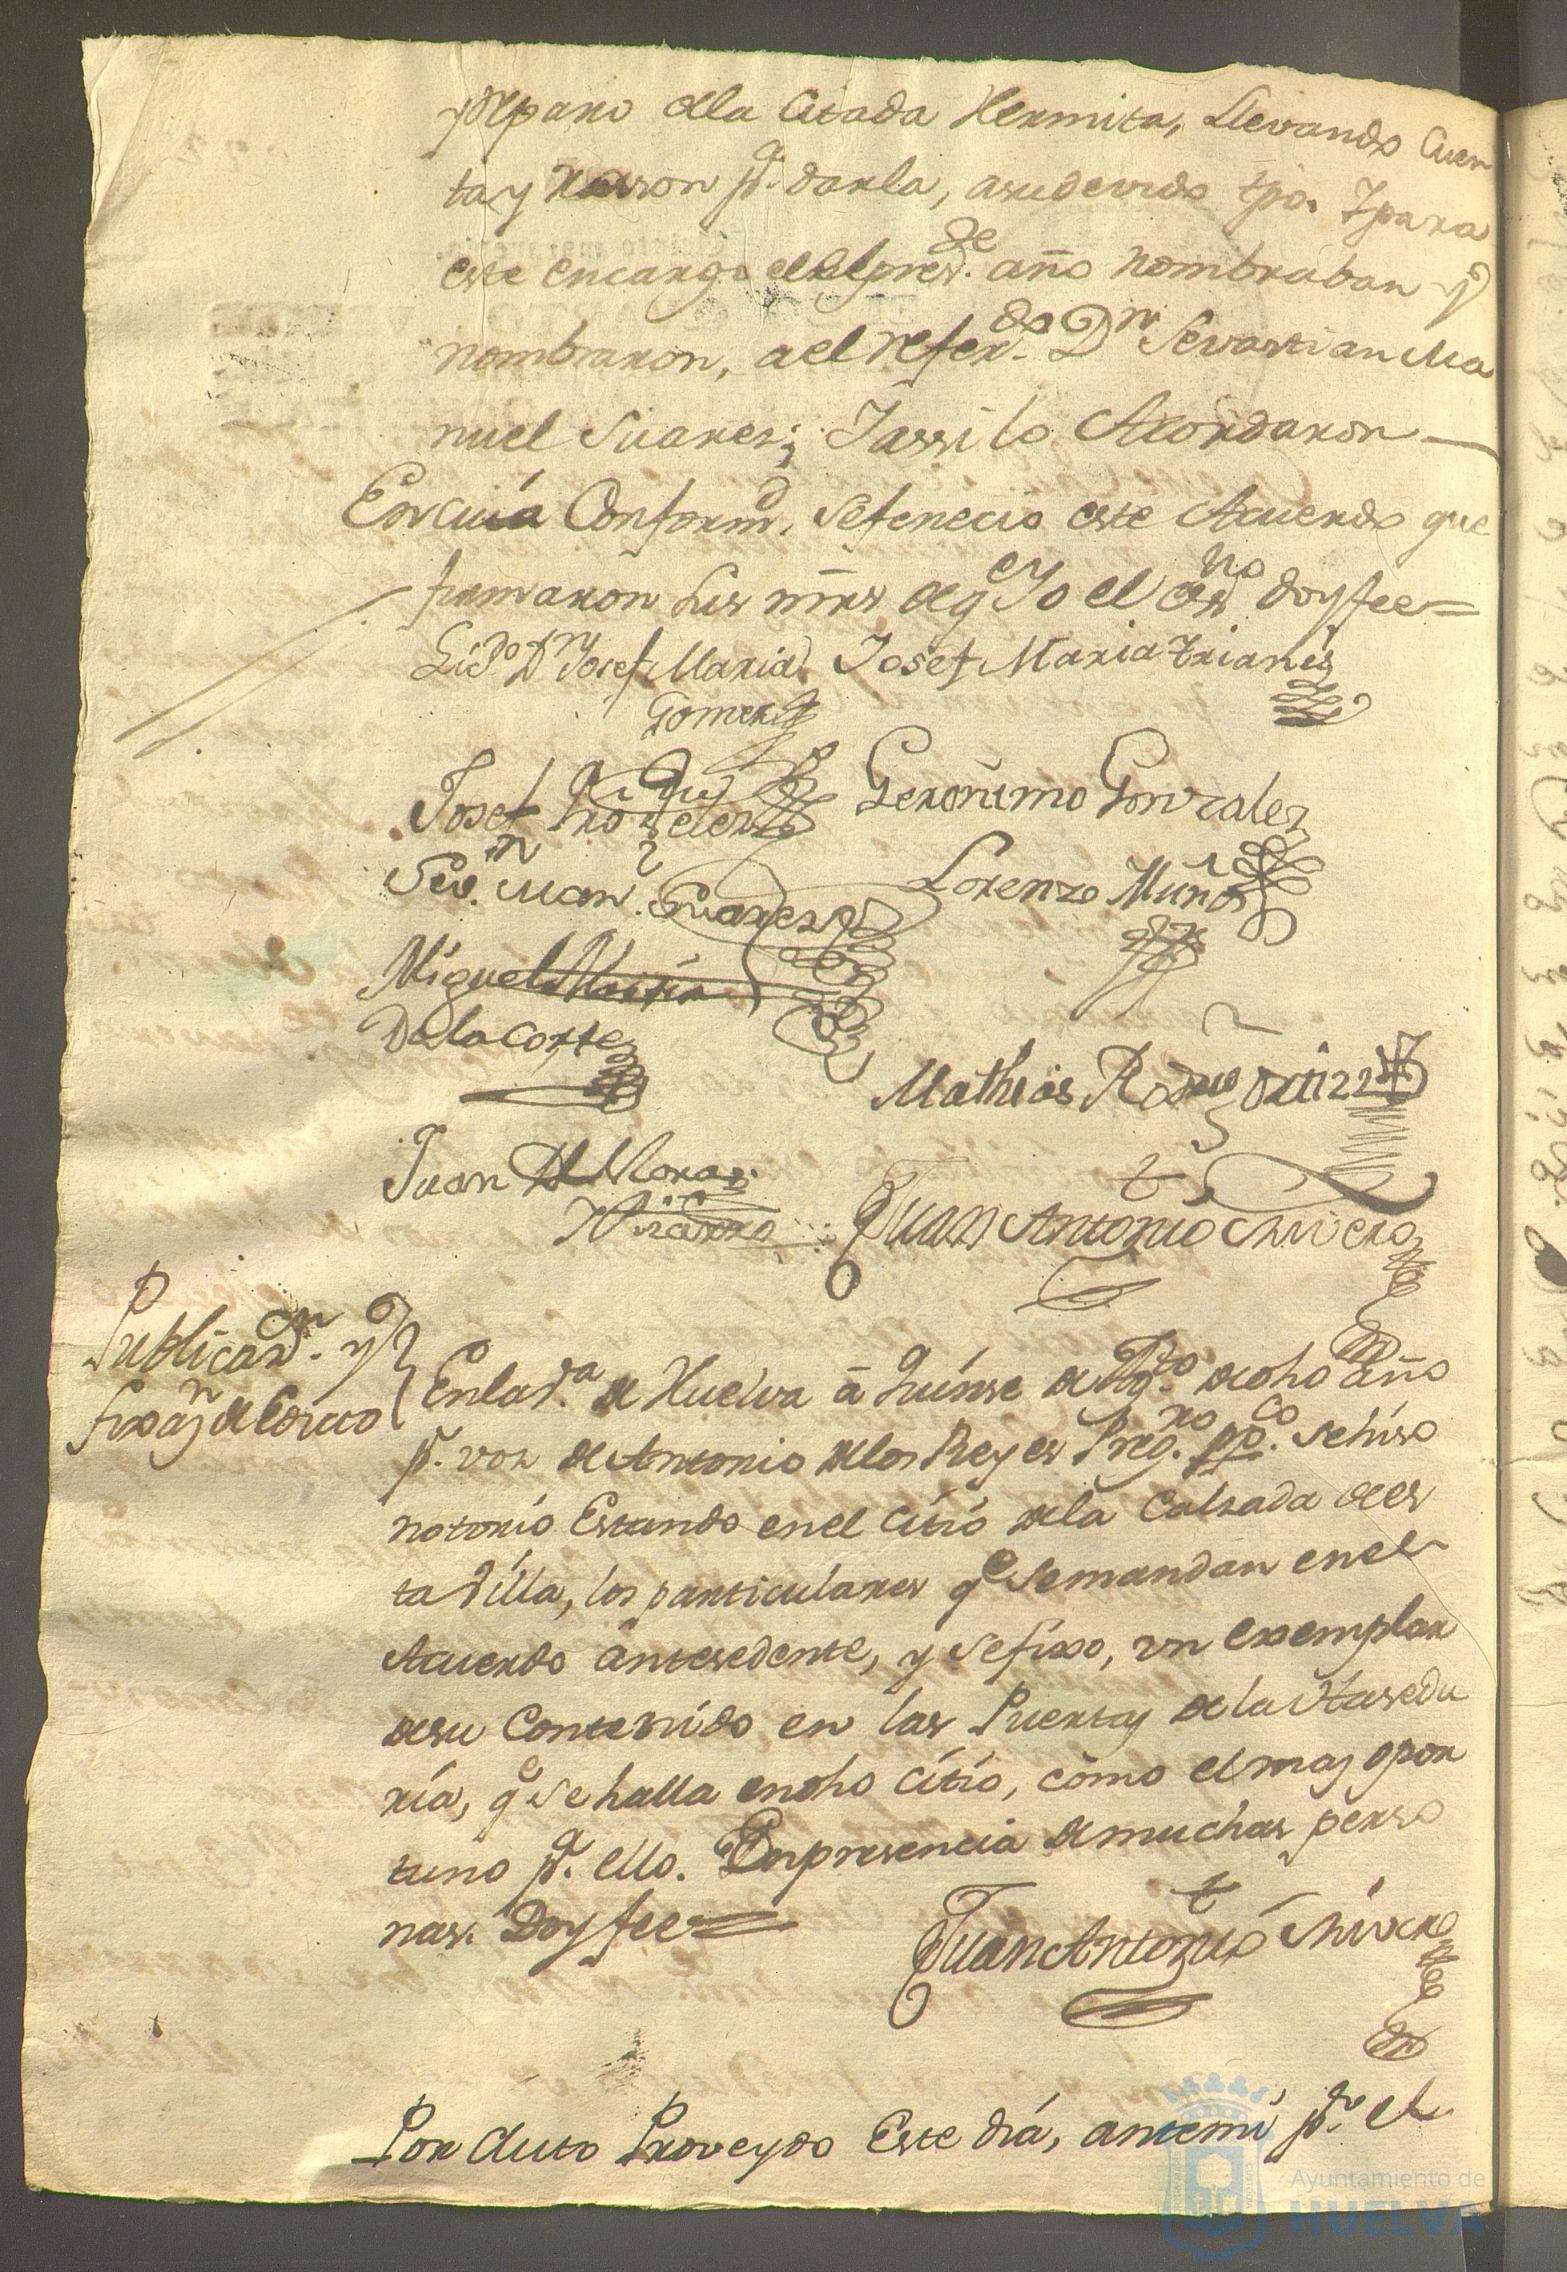 reparo de la Citada Hermita, Llevando Cuen
ta y razon pa. darla, a su devido tpo. Y para
este encargo en el preste. año nombraban y
nombraron, a el referdo. Dn Sevastian Ma
nuel Suares; Y assi lo Acordaron
En cuia Conformd. se fenecio este Acuerdo que
firmaron Sus mrs de qe Yo el esno doy fee=
Licdo Dn Josef Maria Gomez
Josef Maria Trianes
Josef
Geronimo Gonzales
Sevn. Man. Suarez
Lorenzo Muños
Miguel Martin
De la Corte
Mathias Rodrigz Ortiz
Juan De Mora
Juan Antto Chivero
Publicacon. y
fixazn de Edicto
En la va. de Huelva â Quinse de Agto. de dho año
pr. vox de Antonio de los Reyes Pregno. ppco. se hiso
notorio Estando en el Citio de la Calzada de es
ta Villa, los particulares qe se mandan en el
Acuerdo antesedente, y se fixo, un exemplar
de su Contenido en las Puertas de la Hasedu
ria, qe se halla en dho Citio, como el mas opor
tuno pa. ello. En presencia de muchas perso
nas. Doy fee=
Juan Antto Chivero
Por Auto Proveydo Este dia, ante mi pr. el
Ayuntamiento de
HUELVA